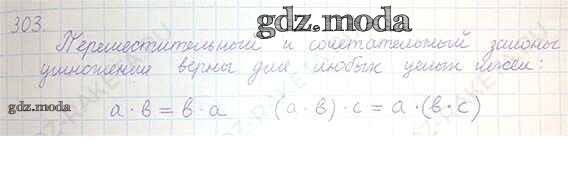 gdz.moda
303.
Переместительный и сочетательный законы
умножения верны для любых целых чисел:
gdz.moda
a · b = b · a (a · b) · c = a · (b · c)